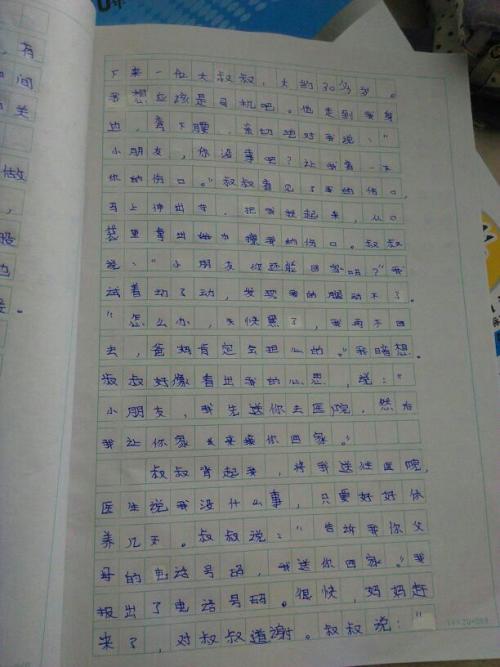 下来一位大叔叔，大约30多岁。
我想应该是司机吧。他走到我身
边，弯下腰，亲切地对我说："
小朋友，你没事吧？让我看一下
你的伤口。"叔叔看见了我的伤口，
马上伸出手，把我扶起来，从口
袋里拿出纸为擦我的伤口。叔叔
说："小朋友你还能回家吗？"我
试着动了动，发现我的腿动不了。
"怎么办，天快黑了，我再不回
去，爸妈肯定会担心的。"我暗想。
叔叔好像看出我的心思，说："
小朋友，我先送你去医院，然后
我让你家人来接你回家。"
叔叔背起我，将我送往医院，
医生说我没什么事，只要好好休
养几天。叔叔说："告诉我你父
母的电话号码，我送你回家。"我
报出了电话号码。很快，妈妈赶
来了，对叔叔道谢。叔叔说："
，有
间
关
做
，
股